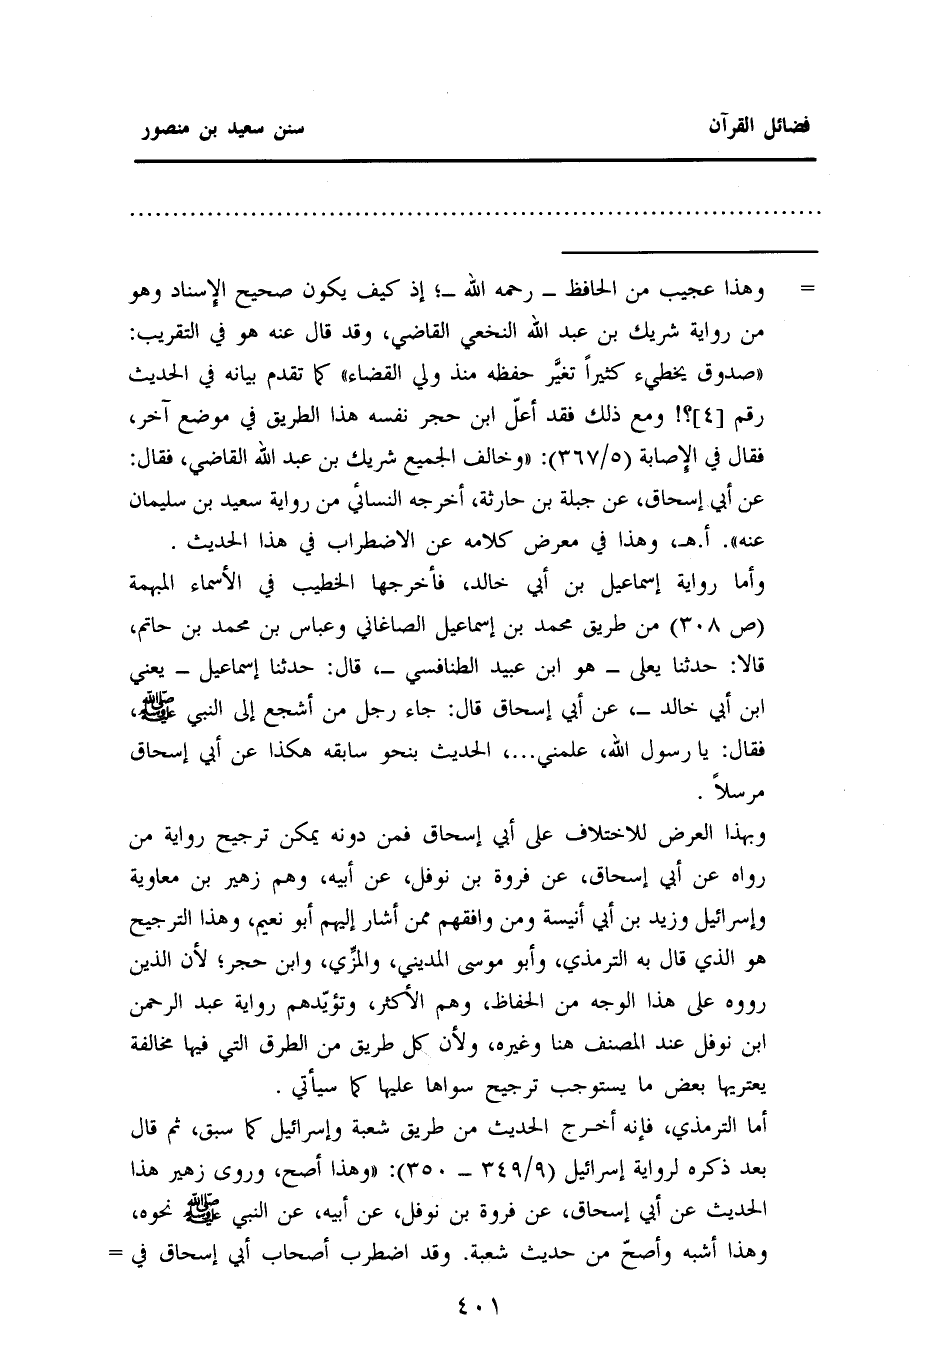 فضائل القرآن
سنن سعيد بن منصور
................................................................................
= وهذا عجيب من الحافظ ــ رحمه الله ــ؛ إذ كيف يكون صحيح الإسناد وهو
من رواية شريك بن عبد الله النخعي القاضي، وقد قال عنه هو في التقريب:
«صدوق يخطيء كثيراً تغيَّر حفظه منذ ولي القضاء» كما تقدم بيانه في الحديث
رقم [٤]؟! ومع ذلك فقد أعلّ ابن حجر نفسه هذا الطريق في موضع آخر،
فقال في الإصابة (٣٦٧/٥): «وخالف الجميع شريك بن عبد الله القاضي، فقال:
عن أبي إسحاق، عن جبلة بن حارثة، أخرجه النسائي من رواية سعيد بن سليمان
عنه». أ.هـ، وهذا في معرض كلامه عن الاضطراب في هذا الحديث .
وأما رواية إسماعيل بن أبي خالد، فأخرجها الخطيب في الأسماء المبهمة
(ص ٣٠٨) من طريق محمد بن إسماعيل الصاغاني وعباس بن محمد بن حاتم،
قالا: حدثنا يعلى ــ هو ابن عبيد الطنافسي ــ، قال: حدثنا إسماعيل ــ يعني
ابن أبي خالد ــ، عن أبي إسحاق قال: جاء رجل من أشجع إلى النبي ﷺ،
فقال: يا رسول الله، علمني...، الحديث بنحو سابقه هكذا عن أبي إسحاق
مرسلاً .
وبهذا العرض للاختلاف على أبي إسحاق فمن دونه يمكن ترجيح رواية من
رواه عن أبي إسحاق، عن فروة بن نوفل، عن أبيه، وهم زهير بن معاوية
وإسرائيل وزيد بن أبي أنيسة ومن وافقهم ممن أشار إليهم أبو نعيم، وهذا الترجيح
هو الذي قال به الترمذي، وأبو موسى المديني، والمزِّي، وابن حجر؛ لأن الذين
رووه على هذا الوجه من الحفاظ، وهم الأكثر، وتؤيّدهم رواية عبد الرحمن
ابن نوفل عند المصنف هنا وغيره، ولأن كل طريق من الطرق التي فيها مخالفة
يعتريها بعض ما يستوجب ترجيح سواها عليها كما سيأتي .
أما الترمذي، فإنه أخرج الحديث من طريق شعبة وإسرائيل كما سبق، ثم قال
بعد ذكره لرواية إسرائيل (٣٤٩/٩ ــ ٣٥٠): «وهذا أصح، وروى زهير هذا
الحديث عن أبي إسحاق، عن فروة بن نوفل، عن أبيه، عن النبي ﷺ نحوه،
وهذا أشبه وأصحّ من حديث شعبة. وقد اضطرب أصحاب أبي إسحاق في =
٤٠١